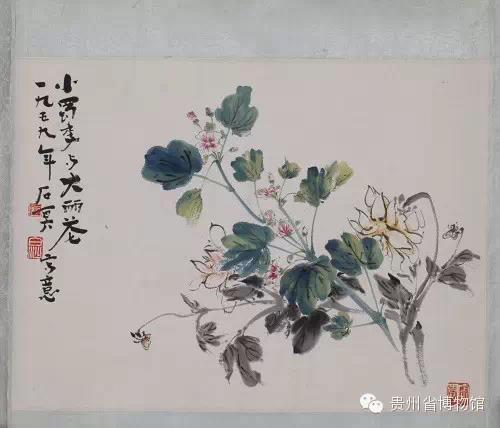 小蜀季与大丽花
一九七九年石冥
写意
贵州省博物馆